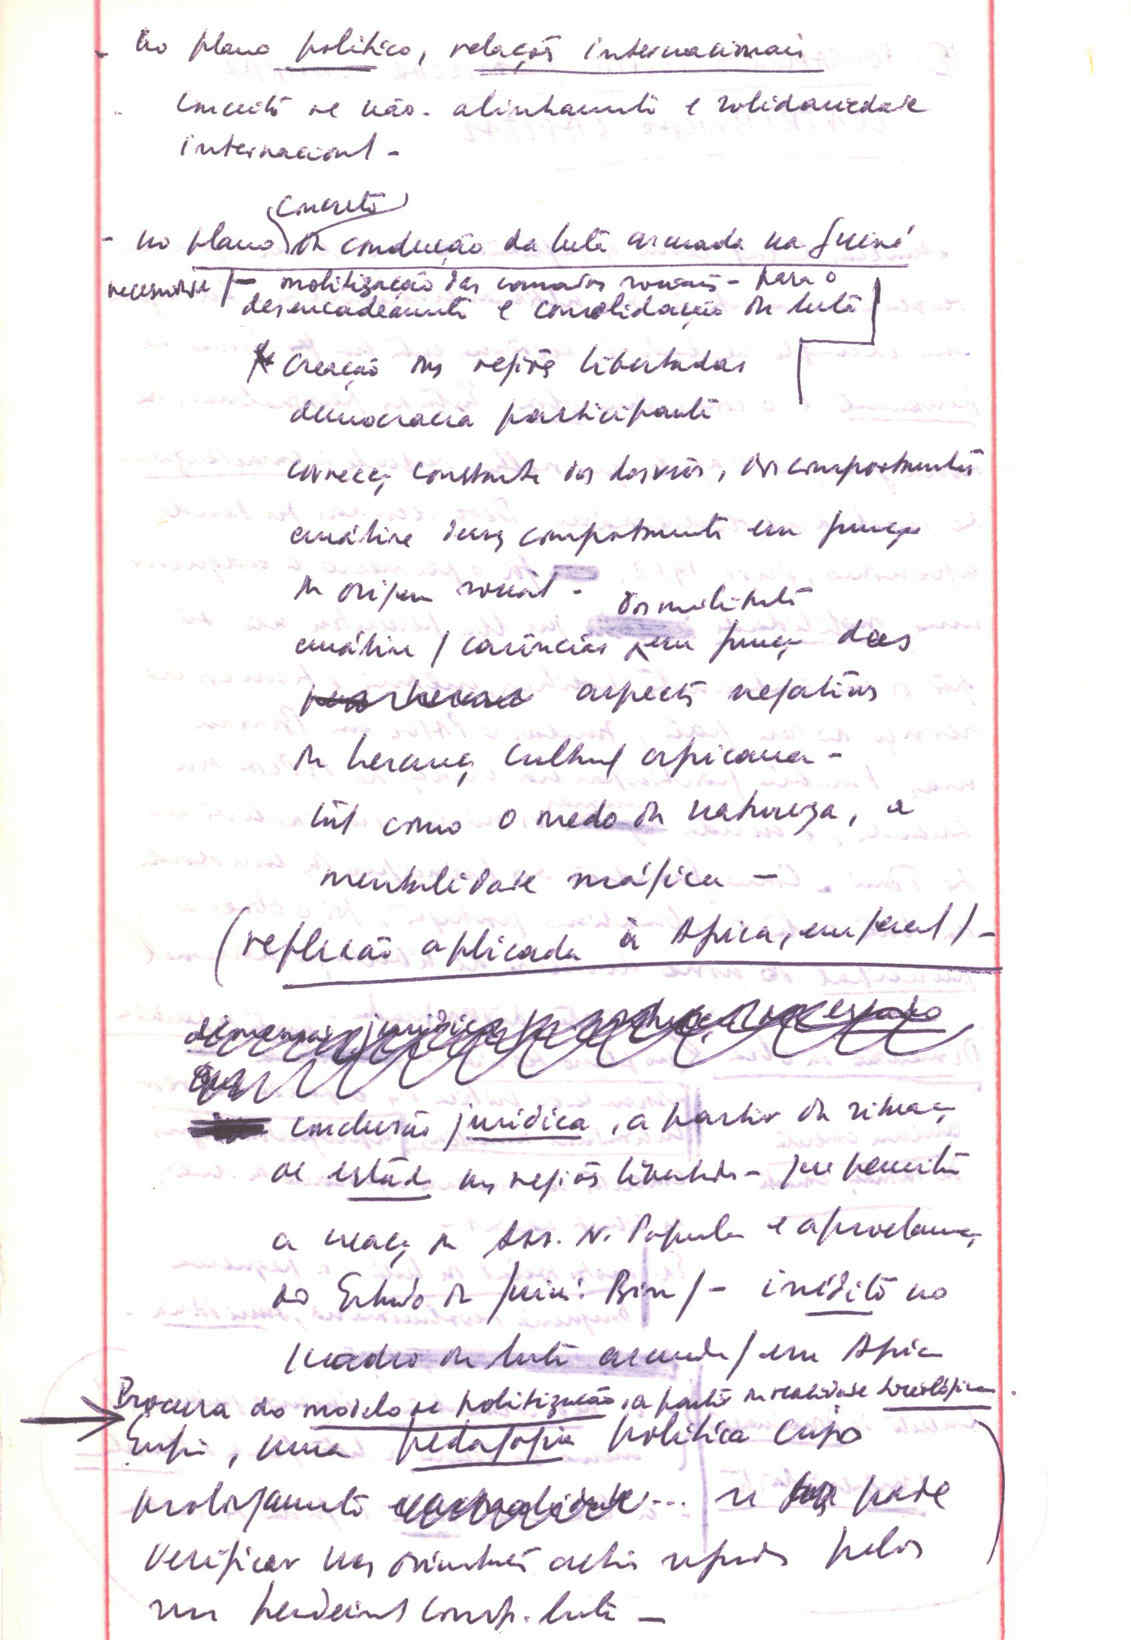 - no plano político, relações internacionais
conceito de não-alinhamento e solidariedade
internacional -
concreto
- no plano da condução da luta armada na Guiné
necessidade / - mobilização das camadas sociais - para o
desencadeamento e consolidação da luta
* Criação das regiões libertadas
democracia participante
correcç constante dos desvios, dos comportamentos
análise desses comportamentos em função
da origem social -
dos militantes
análise / carências em função dos
aspectos negativos
da herança cultural africana -
tal como o medo da natureza, a
mentalidade mágica -
(reflexão aplicada à Africa, em geral) -
conclusão jurídica, a partir da situaç
de estado nas regiões libertadas - que permitiu
a criaç da Ass. N. Popular e a proclamaç
do Estado da Guiné Bissau / - inédito no
quadro da luta armada / em Africa
Procura do modelo de politização, a partir da realidade sociológica.
Enfim, uma pedagogia política cujo
prolongamento ... se pode
verificar nas orientações seguidas pelos
seus herdeiros comp. luta -